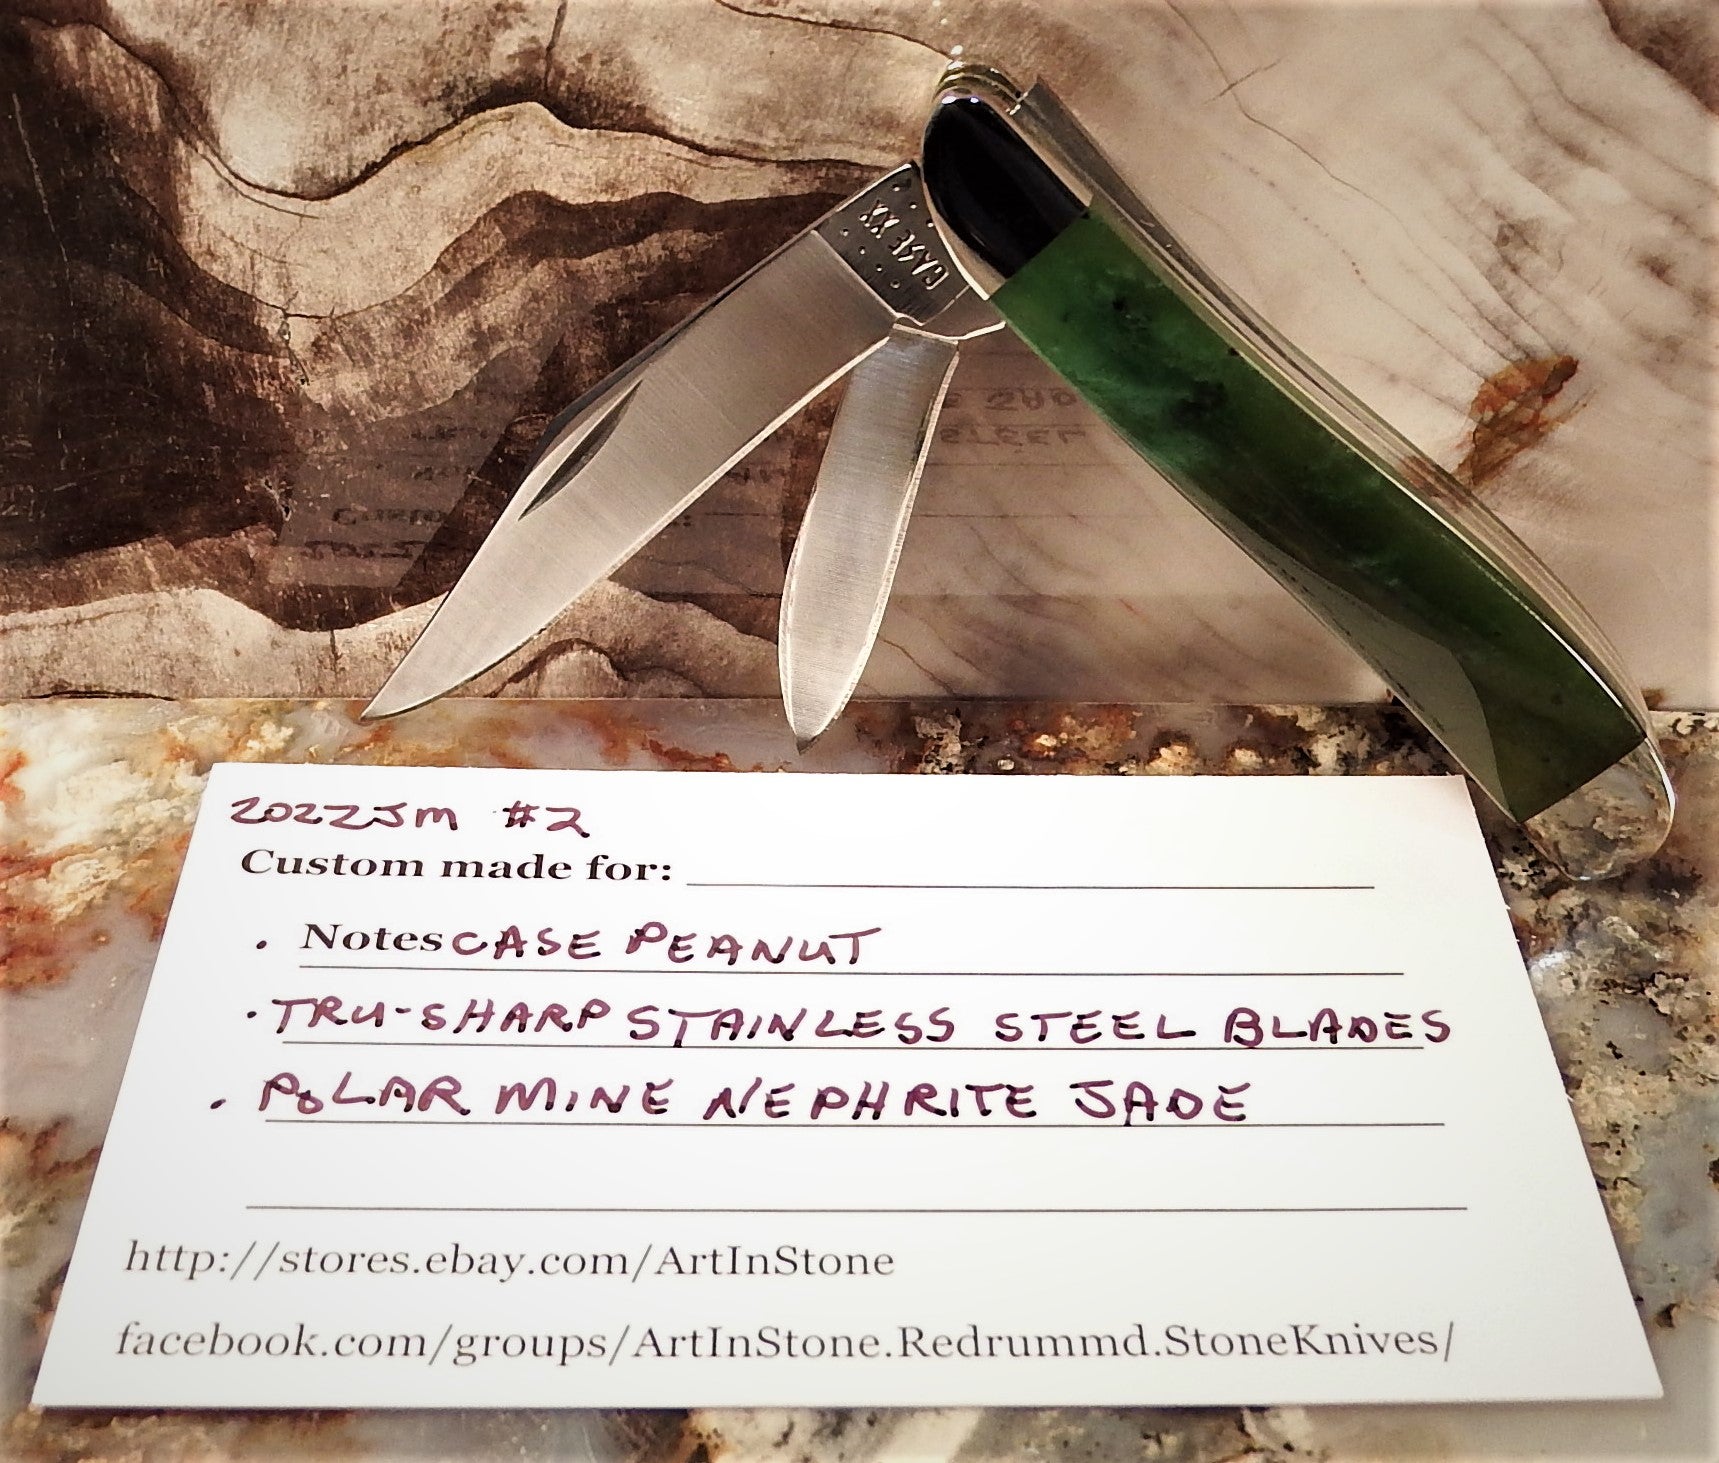 CASE XX
2022JM #2
Custom made for:
. Notes CASE PEANUT
. TRU-SHARP STAINLESS STEEL BLADES
. POLAR MINE NEPHRITE JADE
http://stores.ebay.com/ArtInStone
facebook.com/groups/ArtInStone.Redrummd.StoneKnives/